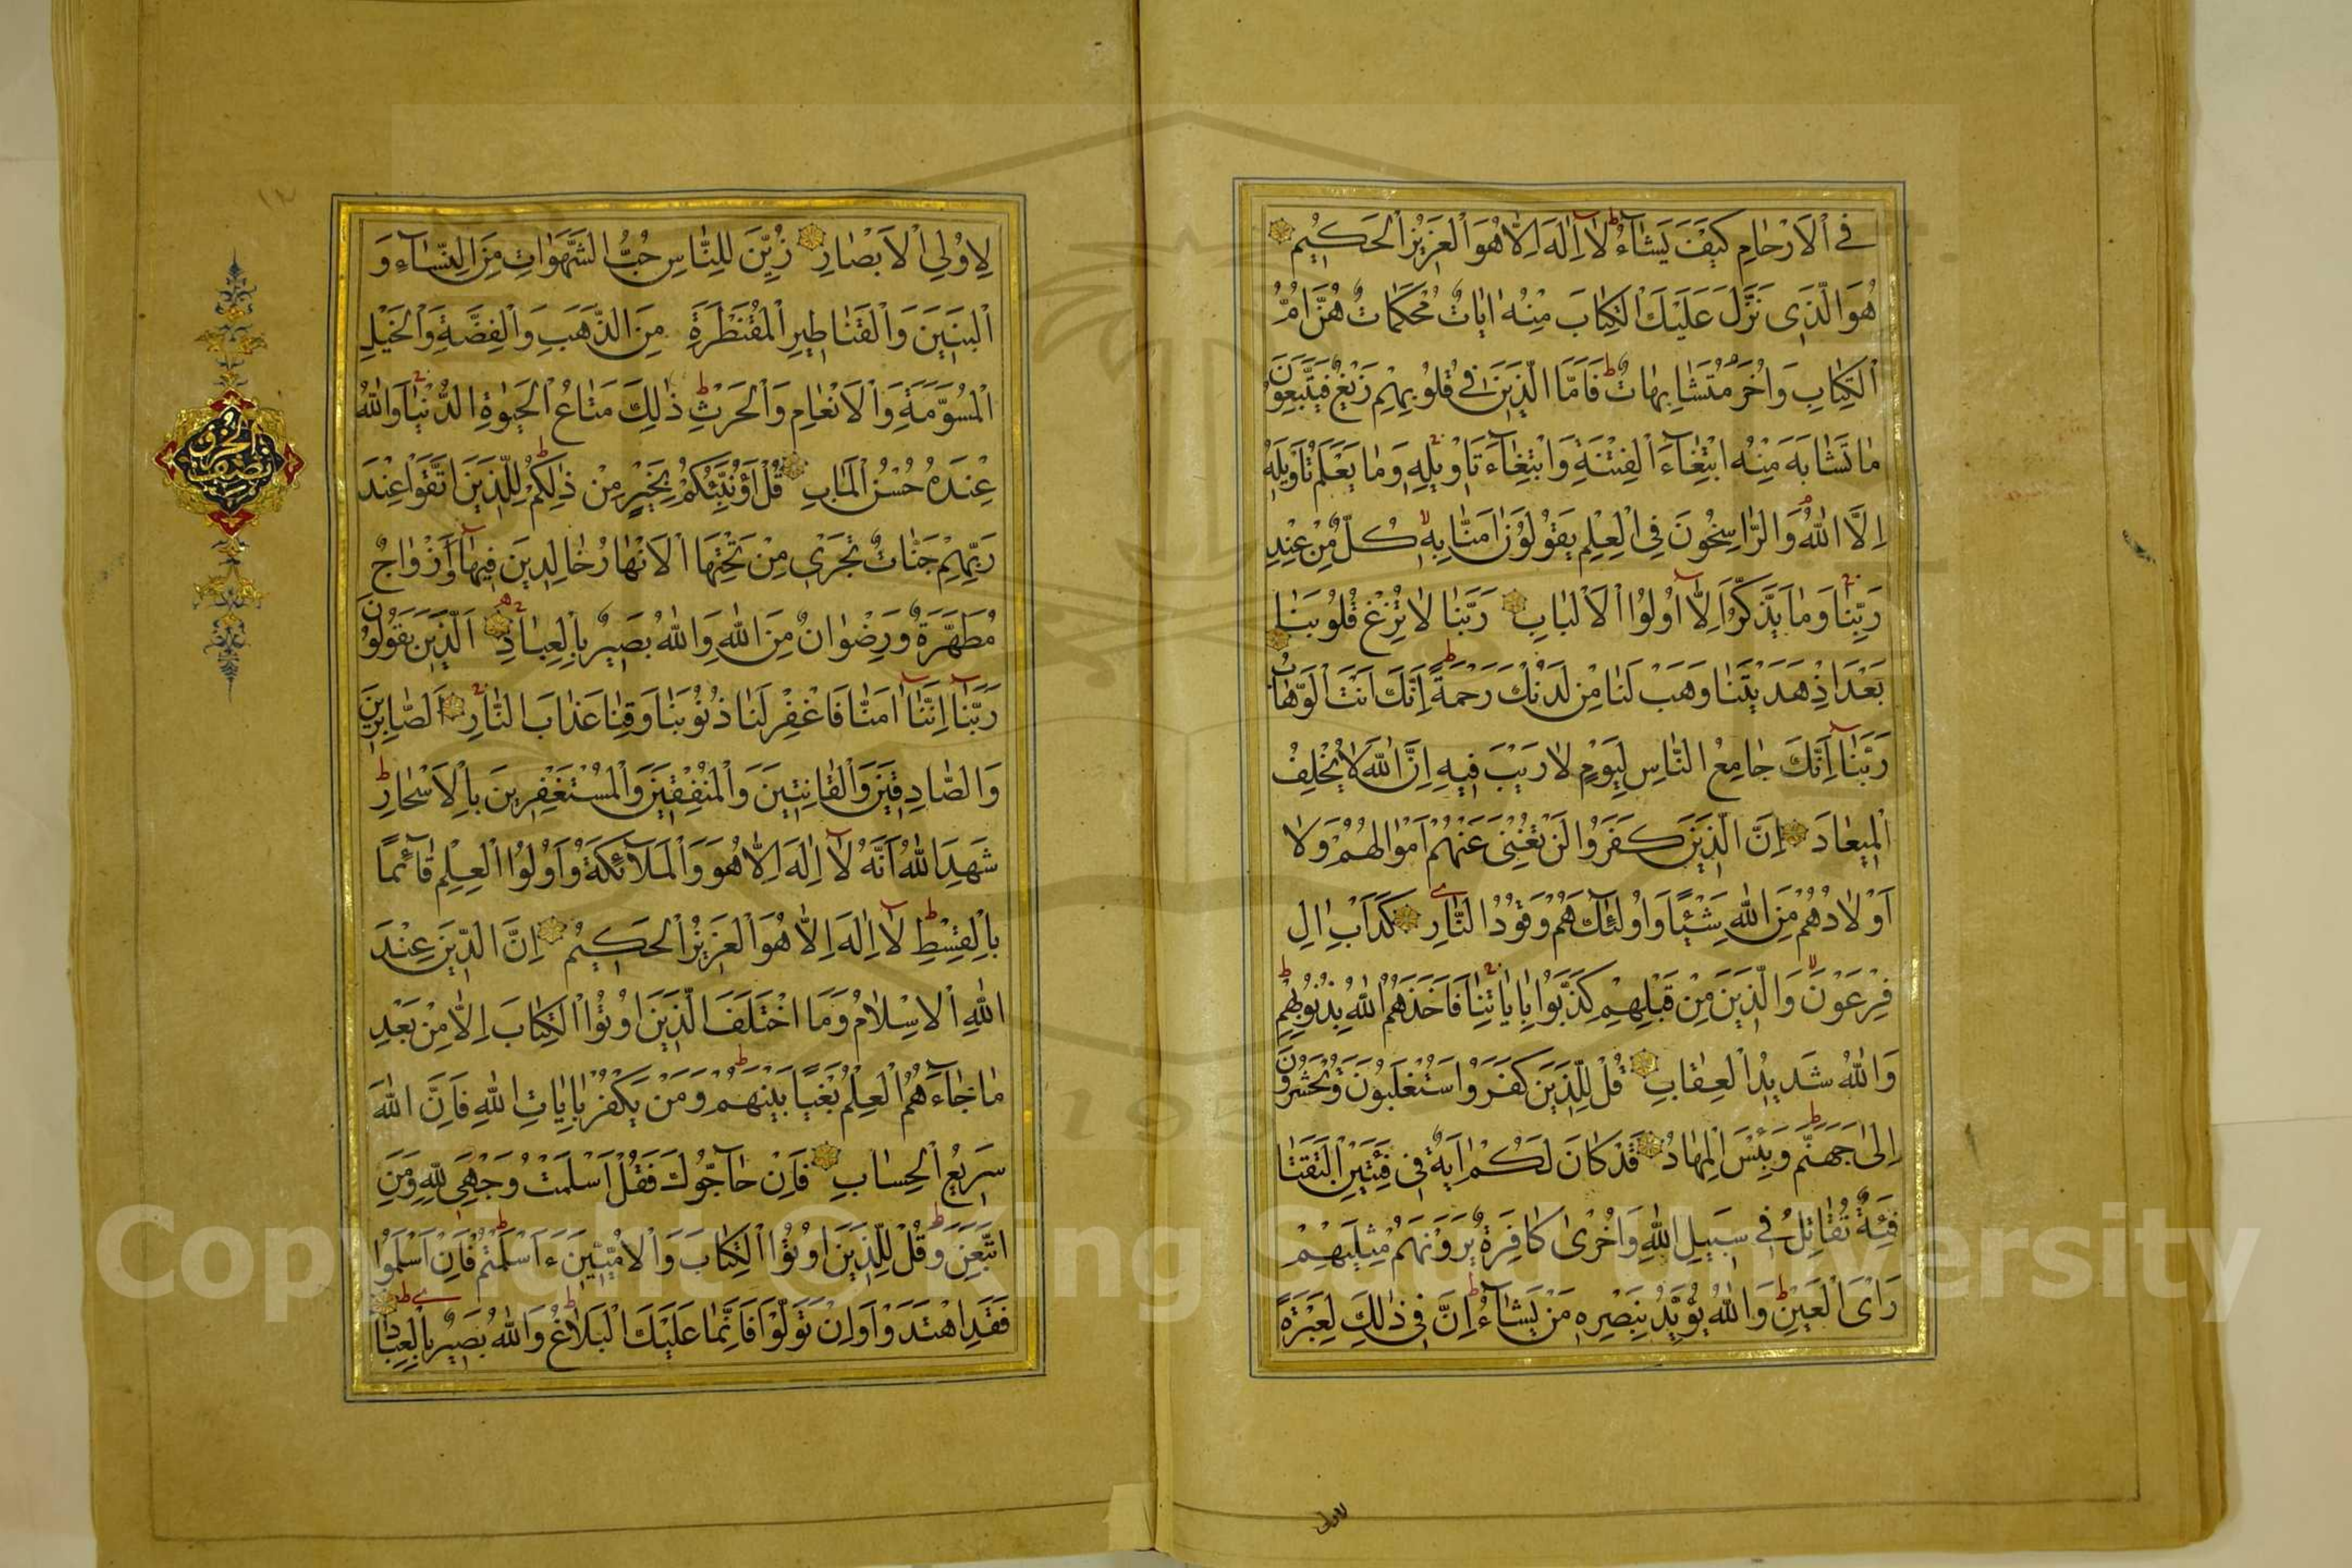 في الْاَرْحٰامِ كَيْفَ يَشٰآءُ لٰا اِلٰهَ اِلّٰا هُوَ الْعَزيزُ الْحَكيمُ
هُوَ الَّذي نَزَّلَ عَلَيْكَ الْكِتٰابَ مِنْهُ اٰيٰاتٌ مُحْكَمٰاتٌ هُنَّ اُمُّ
الْكِتٰابِ وَاُخَرُ مُتَشٰابِهٰاتٌ فَاَمَّا الَّذينَ في قُلُوبِهِمْ زَيْغٌ فَيَتَّبِعُونَ
مٰا تَشٰابَهَ مِنْهُ ابْتِغٰآءَ الْفِتْنَةِ وَابْتِغٰآءَ تَاْويلِهِ وَمٰا يَعْلَمُ تَاْويلَهُ
اِلَّا اللّٰهُ وَالرّٰاسِخُونَ فِي الْعِلْمِ يَقُولُونَ اٰمَنّٰا بِهِ كُلٌّ مِنْ عِنْدِ
رَبِّنٰا وَمٰا يَذَّكَّرُ اِلّٰا اُولُوا الْاَلْبٰابِ رَبَّنٰا لٰا تُزِغْ قُلُوبَنٰا
بَعْدَ اِذْ هَدَيْتَنٰا وَهَبْ لَنٰا مِنْ لَدُنْكَ رَحْمَةً اِنَّكَ اَنْتَ الْوَهّٰابُ
رَبَّنٰا اِنَّكَ جٰامِعُ النّٰاسِ لِيَوْمٍ لٰا رَيْبَ فيهِ اِنَّ اللّٰهَ لٰا يُخْلِفُ
الْميعٰادَ اِنَّ الَّذينَ كَفَرُوا لَنْ تُغْنِيَ عَنْهُمْ اَمْوٰالُهُمْ وَلٰا
اَوْلٰادُهُمْ مِنَ اللّٰهِ شَيْئًا وَاُولٰئِكَ هُمْ وَقُودُ النّٰارِ كَدَاْبِ اٰلِ
فِرْعَوْنَ وَالَّذينَ مِنْ قَبْلِهِمْ كَذَّبُوا بِاٰيٰاتِنٰا فَاَخَذَهُمُ اللّٰهُ بِذُنُوبِهِمْ
وَاللّٰهُ شَديدُ الْعِقٰابِ قُلْ لِلَّذينَ كَفَرُوا سَتُغْلَبُونَ وَتُحْشَرُونَ
اِلٰى جَهَنَّمَ وَبِئْسَ الْمِهٰادُ قَدْ كٰانَ لَكُمْ اٰيَةٌ في فِئَتَيْنِ الْتَقَتٰا
فِئَةٌ تُقٰاتِلُ في سَبيلِ اللّٰهِ وَاُخْرٰى كٰافِرَةٌ يَرَوْنَهُمْ مِثْلَيْهِمْ
رَاْيَ الْعَيْنِ وَاللّٰهُ يُؤَيِّدُ بِنَصْرِهِ مَنْ يَشٰآءُ اِنَّ في ذٰلِكَ لَعِبْرَةً
لاولى
لِاُولِي الْاَبْصٰارِ زُيِّنَ لِلنّٰاسِ حُبُّ الشَّهَوٰاتِ مِنَ النِّسٰآءِ وَ
الْبَنينَ وَالْقَنٰاطيرِ الْمُقَنْطَرَةِ مِنَ الذَّهَبِ وَالْفِضَّةِ وَالْخَيْلِ
الْمُسَوَّمَةِ وَالْاَنْعٰامِ وَالْحَرْثِ ذٰلِكَ مَتٰاعُ الْحَيٰوةِ الدُّنْيٰا وَاللّٰهُ
عِنْدَهُ حُسْنُ الْمَاٰبِ قُلْ اَؤُنَبِّئُكُمْ بِخَيْرٍ مِنْ ذٰلِكُمْ لِلَّذينَ اتَّقَوْا عِنْدَ
رَبِّهِمْ جَنّٰاتٌ تَجْري مِنْ تَحْتِهَا الْاَنْهٰارُ خٰالِدينَ فيهٰا وَاَزْوٰاجٌ
مُطَهَّرَةٌ وَرِضْوٰانٌ مِنَ اللّٰهِ وَاللّٰهُ بَصيرٌ بِالْعِبٰادِ اَلَّذينَ يَقُولُونَ
رَبَّنٰا اِنَّنٰا اٰمَنّٰا فَاغْفِرْ لَنٰا ذُنُوبَنٰا وَقِنٰا عَذٰابَ النّٰارِ اَلصّٰابِرينَ
وَالصّٰادِقينَ وَالْقٰانِتينَ وَالْمُنْفِقينَ وَالْمُسْتَغْفِرينَ بِالْاَسْحٰارِ
شَهِدَ اللّٰهُ اَنَّهُ لٰا اِلٰهَ اِلّٰا هُوَ وَالْمَلٰآئِكَةُ وَاُولُوا الْعِلْمِ قٰآئِمًا
بِالْقِسْطِ لٰا اِلٰهَ اِلّٰا هُوَ الْعَزيزُ الْحَكيمُ اِنَّ الدّينَ عِنْدَ
اللّٰهِ الْاِسْلٰامُ وَمَا اخْتَلَفَ الَّذينَ اُوتُوا الْكِتٰابَ اِلّٰا مِنْ بَعْدِ
مٰا جٰآءَهُمُ الْعِلْمُ بَغْيًا بَيْنَهُمْ وَمَنْ يَكْفُرْ بِاٰيٰاتِ اللّٰهِ فَاِنَّ اللّٰهَ
سَريعُ الْحِسٰابِ فَاِنْ حٰآجُّوكَ فَقُلْ اَسْلَمْتُ وَجْهِيَ لِلّٰهِ وَمَنِ
اتَّبَعَنِ وَقُلْ لِلَّذينَ اُوتُوا الْكِتٰابَ وَالْاُمِّيّينَ ءَاَسْلَمْتُمْ فَاِنْ اَسْلَمُوا
فَقَدِ اهْتَدَوْا وَاِنْ تَوَلَّوْا فَاِنَّمٰا عَلَيْكَ الْبَلٰاغُ وَاللّٰهُ بَصيرٌ بِالْعِبٰادِ
Copyright © King Saud University